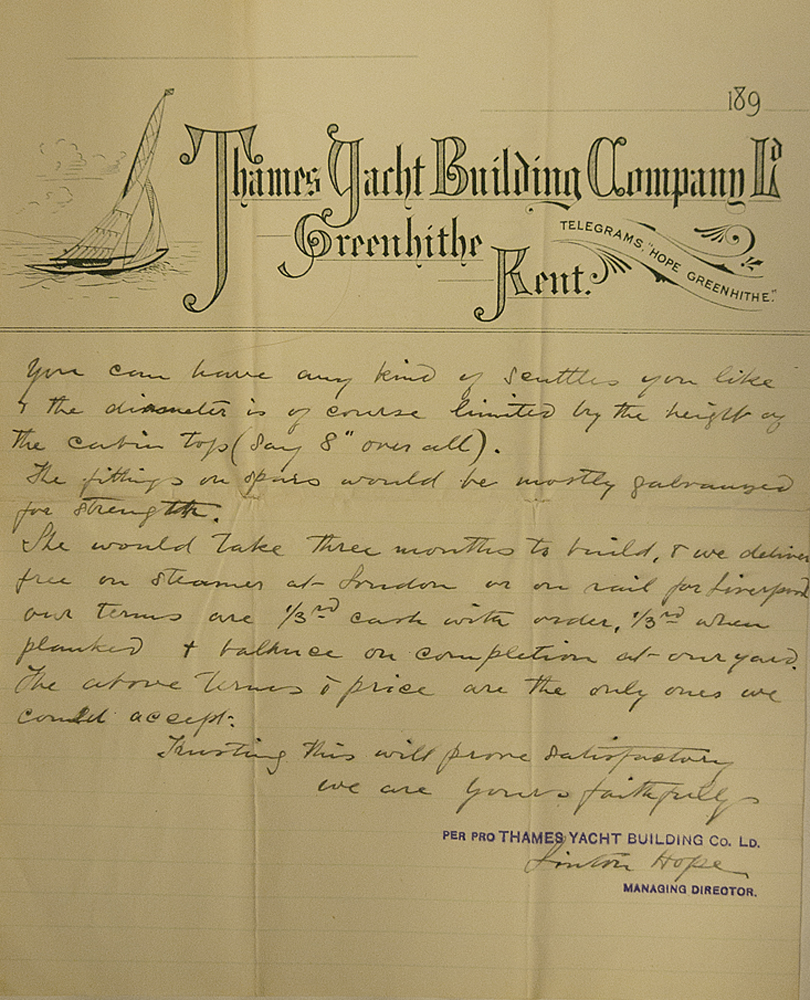 189
Thames Yacht Building Company Ld
Greenhithe
Kent.
TELEGRAMS, "HOPE GREENHITHE."
You can have any kind of scuttles you like
& the diameter is of course limited by the height of
the cabin top (say 8" over all).
The fittings on spars would be mostly galvanized
for strength.
She would take three months to build, & we deliver
free on steamer at London or on rail for Liverpool
our terms are 1/3rd cash with order, 1/3rd when
planked & balance on completion at our yard.
The above terms & price are the only ones we
could accept.
Trusting this will prove satisfactory
we are yours faithfully
PER PRO THAMES YACHT BUILDING Co. LD.
Linton Hope
MANAGING DIRECTOR.